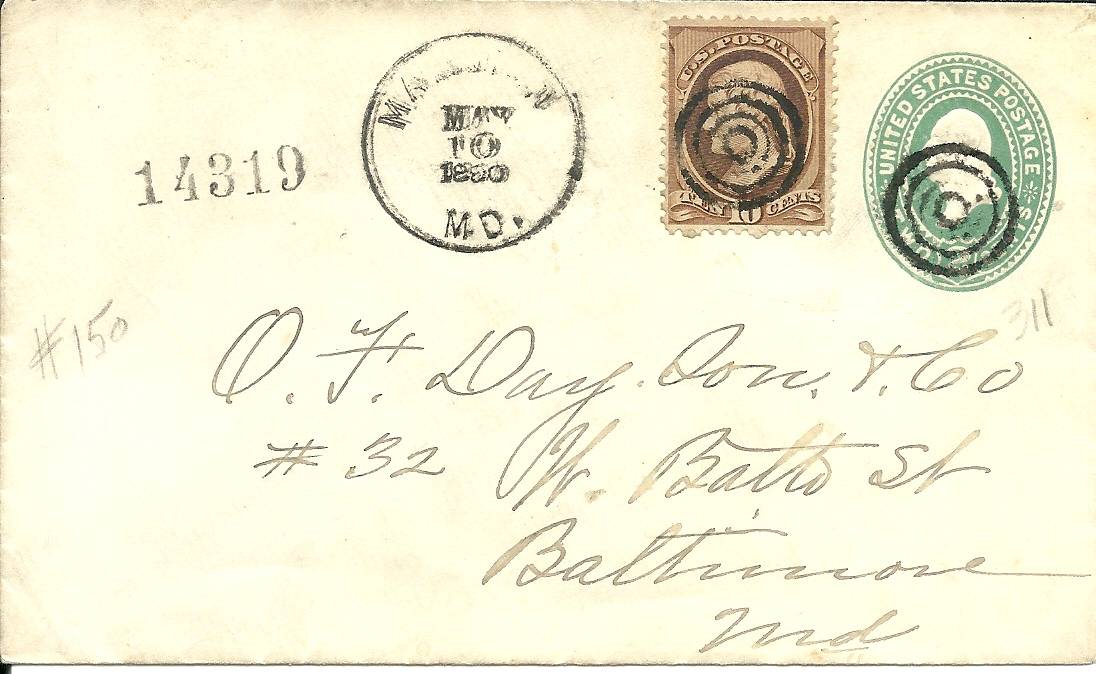 MAY
10
1890
MD.
14319
U.S. POSTAGE
TEN 10 CENTS
UNITED STATES POSTAGE
#150
311
O. F. Day. Son. & Co
# 32 W. Balto St
Baltimore
Md